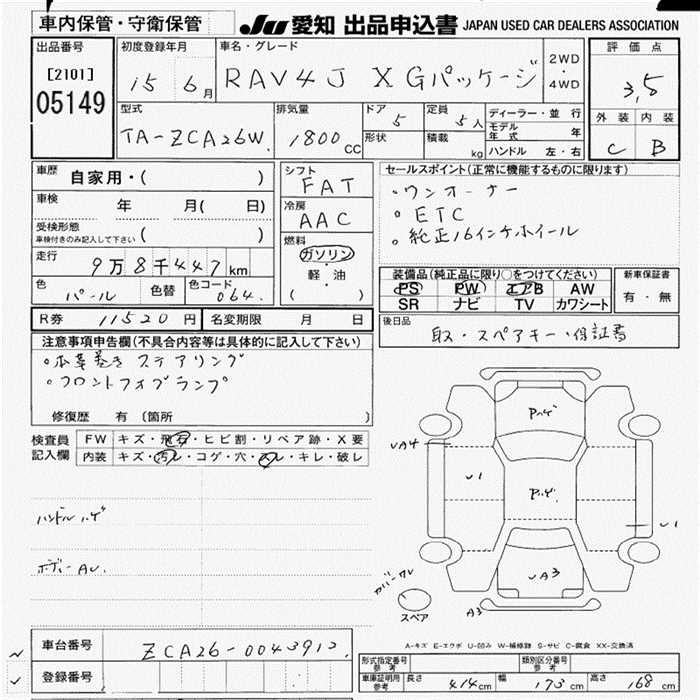 車内保管・守衛保管
JU 愛知 出品申込書 JAPAN USED CAR DEALERS ASSOCIATION
出品番号 [2101] 05149
初度登録年月 15 6月
車名・グレード RAV4J X Gパッケージ 2WD・4WD
評価点 3,5
外装 内装
C B
型式 TA-ZCA26W.
排気量 1800cc
ドア 5 形状
定員 5人 積載 kg
ディーラー・並行
モデル年式 年
ハンドル 左・右
車歴 自家用・( )
車検 年 月( 日)
受検形態 車検付きのみ記入して下さい ( )
走行 9万8千447km
色 パール 色替 色コード 064.
シフト FAT
冷房 AAC
燃料 ガソリン・軽・油 ( )
セールスポイント(正常に機能するものに限ります)
・ワンオーナー
・ETC
・純正16インチホイール
装備品(純正品に限り○をつけてください)
PS PW エアB AW
SR ナビ TV カワシート
新車保証書 有・無
R券 11520円 名変期限 月 日
後日品 取・スペアキー・保証書
注意事項申告欄(不具合内容等は具体的に記入して下さい)
・本革巻きステアリング
・フロントフォグランプ
修復歴 有 〔箇所 〕
検査員記入欄
FW キズ・飛石・ヒビ割・リペア跡・X要
内装 キズ・汚レ・コゲ・穴・スレ・キレ・破レ
ハンドルハゲ
ボデーAU.
Pハゲ
UA4
U1
Pハゲ
U1
UA3
カバーワレ
スペア
A3
A-キズ E-エクボ U-凹み W-補修跡 S-サビ C-腐食 XX-交換済
車台番号 ZCA26-0043912.
登録番号
型式指定番号 参考 類別区分番号 参考
車庫証明用 参考 長さ 414cm 幅 173cm 高さ 168cm